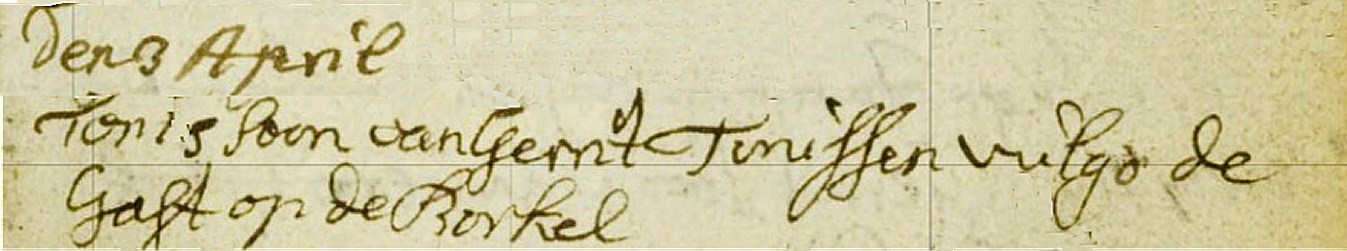 Den 3 April
Tonis soon van Gerrit Tonissen vulgo de
Gast op de Borkel